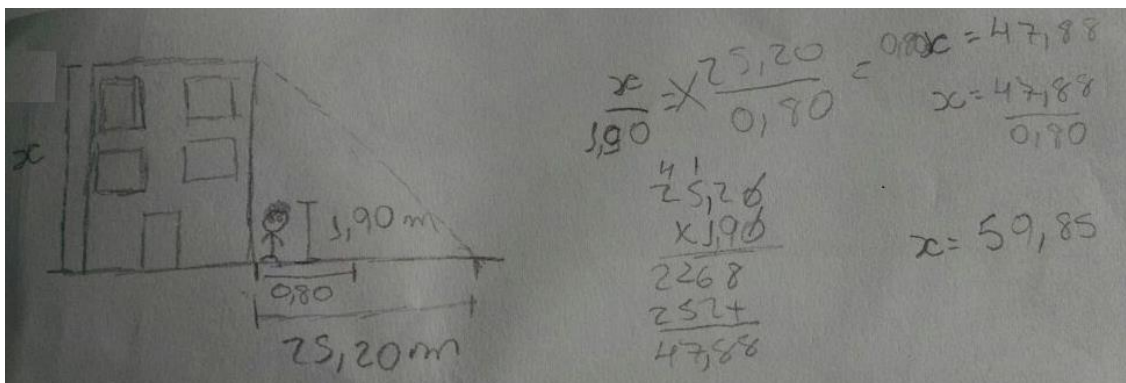 x
1,90 m
0,80
25,20 m
x/1,90 = X 25,20/0,80 = 0,80x = 47,88
x = 47,88/0,80
4 1
25,20
x1,90
2268
252+
47,88
x = 59,85